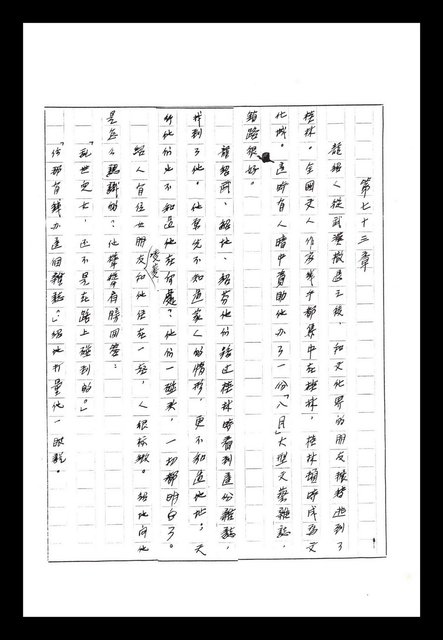 第七十三章
龍紹人從武漢撤退之後，和文化界的朋友輾轉逃到了
桂林。全國文人作家幾乎都集中在桂林，桂林頓時成為文
化城。這時有人暗中資助他辦了一份「八月」大型文藝雜誌，
銷路很好。
龍紹武、紹地、紹芳他們路過桂林時看到這份雜誌，
找到了他。他原先不知道家人的情形，更不知道地址；天
行他們也不知道他在何處？他們一趟來，一切都明白了。
紹人有位女朋友凌菱和他住在一起，人很標緻。紹地問他
是怎麼認識的？他
時回答：
「亂世兒女，還不是在路上碰到的。」
「你那有錢辦這個雜誌？」紹地打量他一眼說。